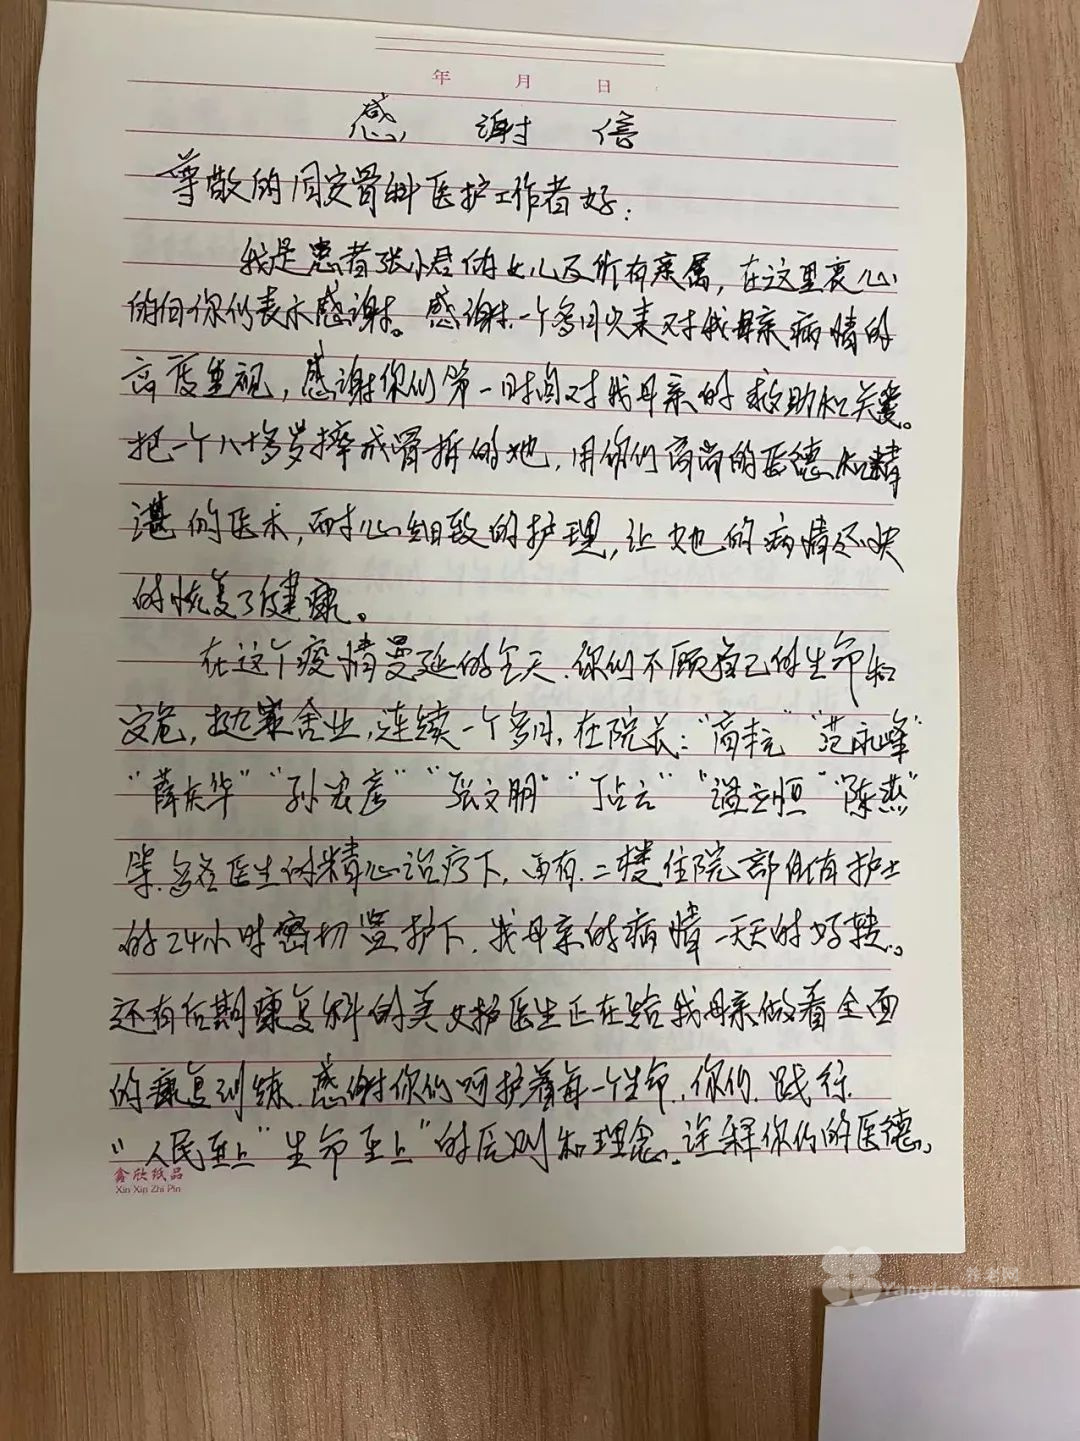 年 月 日
感 谢 信
尊敬的同安骨科医护工作者好:
我是患者张小君的女儿及所有亲属,在这里衷心
的向你们表示感谢。感谢一个多月以来对我母亲病情的
高度重视,感谢你们第一时间对我母亲的救助和关爱。
把一个八十多岁摔成骨折的她,用你们高尚的医德和精
湛的医术,耐心细致的护理,让她的病情尽快
的恢复了健康。
在这个疫情蔓延的冬天,你们不顾自己的生命和
安危,抛家舍业,连续一个多月,在院长:"商" "范永峰"
"薛东华" "孙宏彦" "张文朋" "丁占云" "立恒" "陈燕"
等,多名医生的精心治疗下,再有,二楼住院部所有护士
的24小时密切监护下,我母亲的病情一天天的好转。
还有后期康复科的美女护医生正在给我母亲做着全面
的康复训练,感谢你们呵护着每一个生命,你们,践行
"人民至上"生命至上"的原则和理念。诠释你们的医德,
鑫欣纸品
Xin Xin Zhi Pin
养老网
Yanglao.com.cn